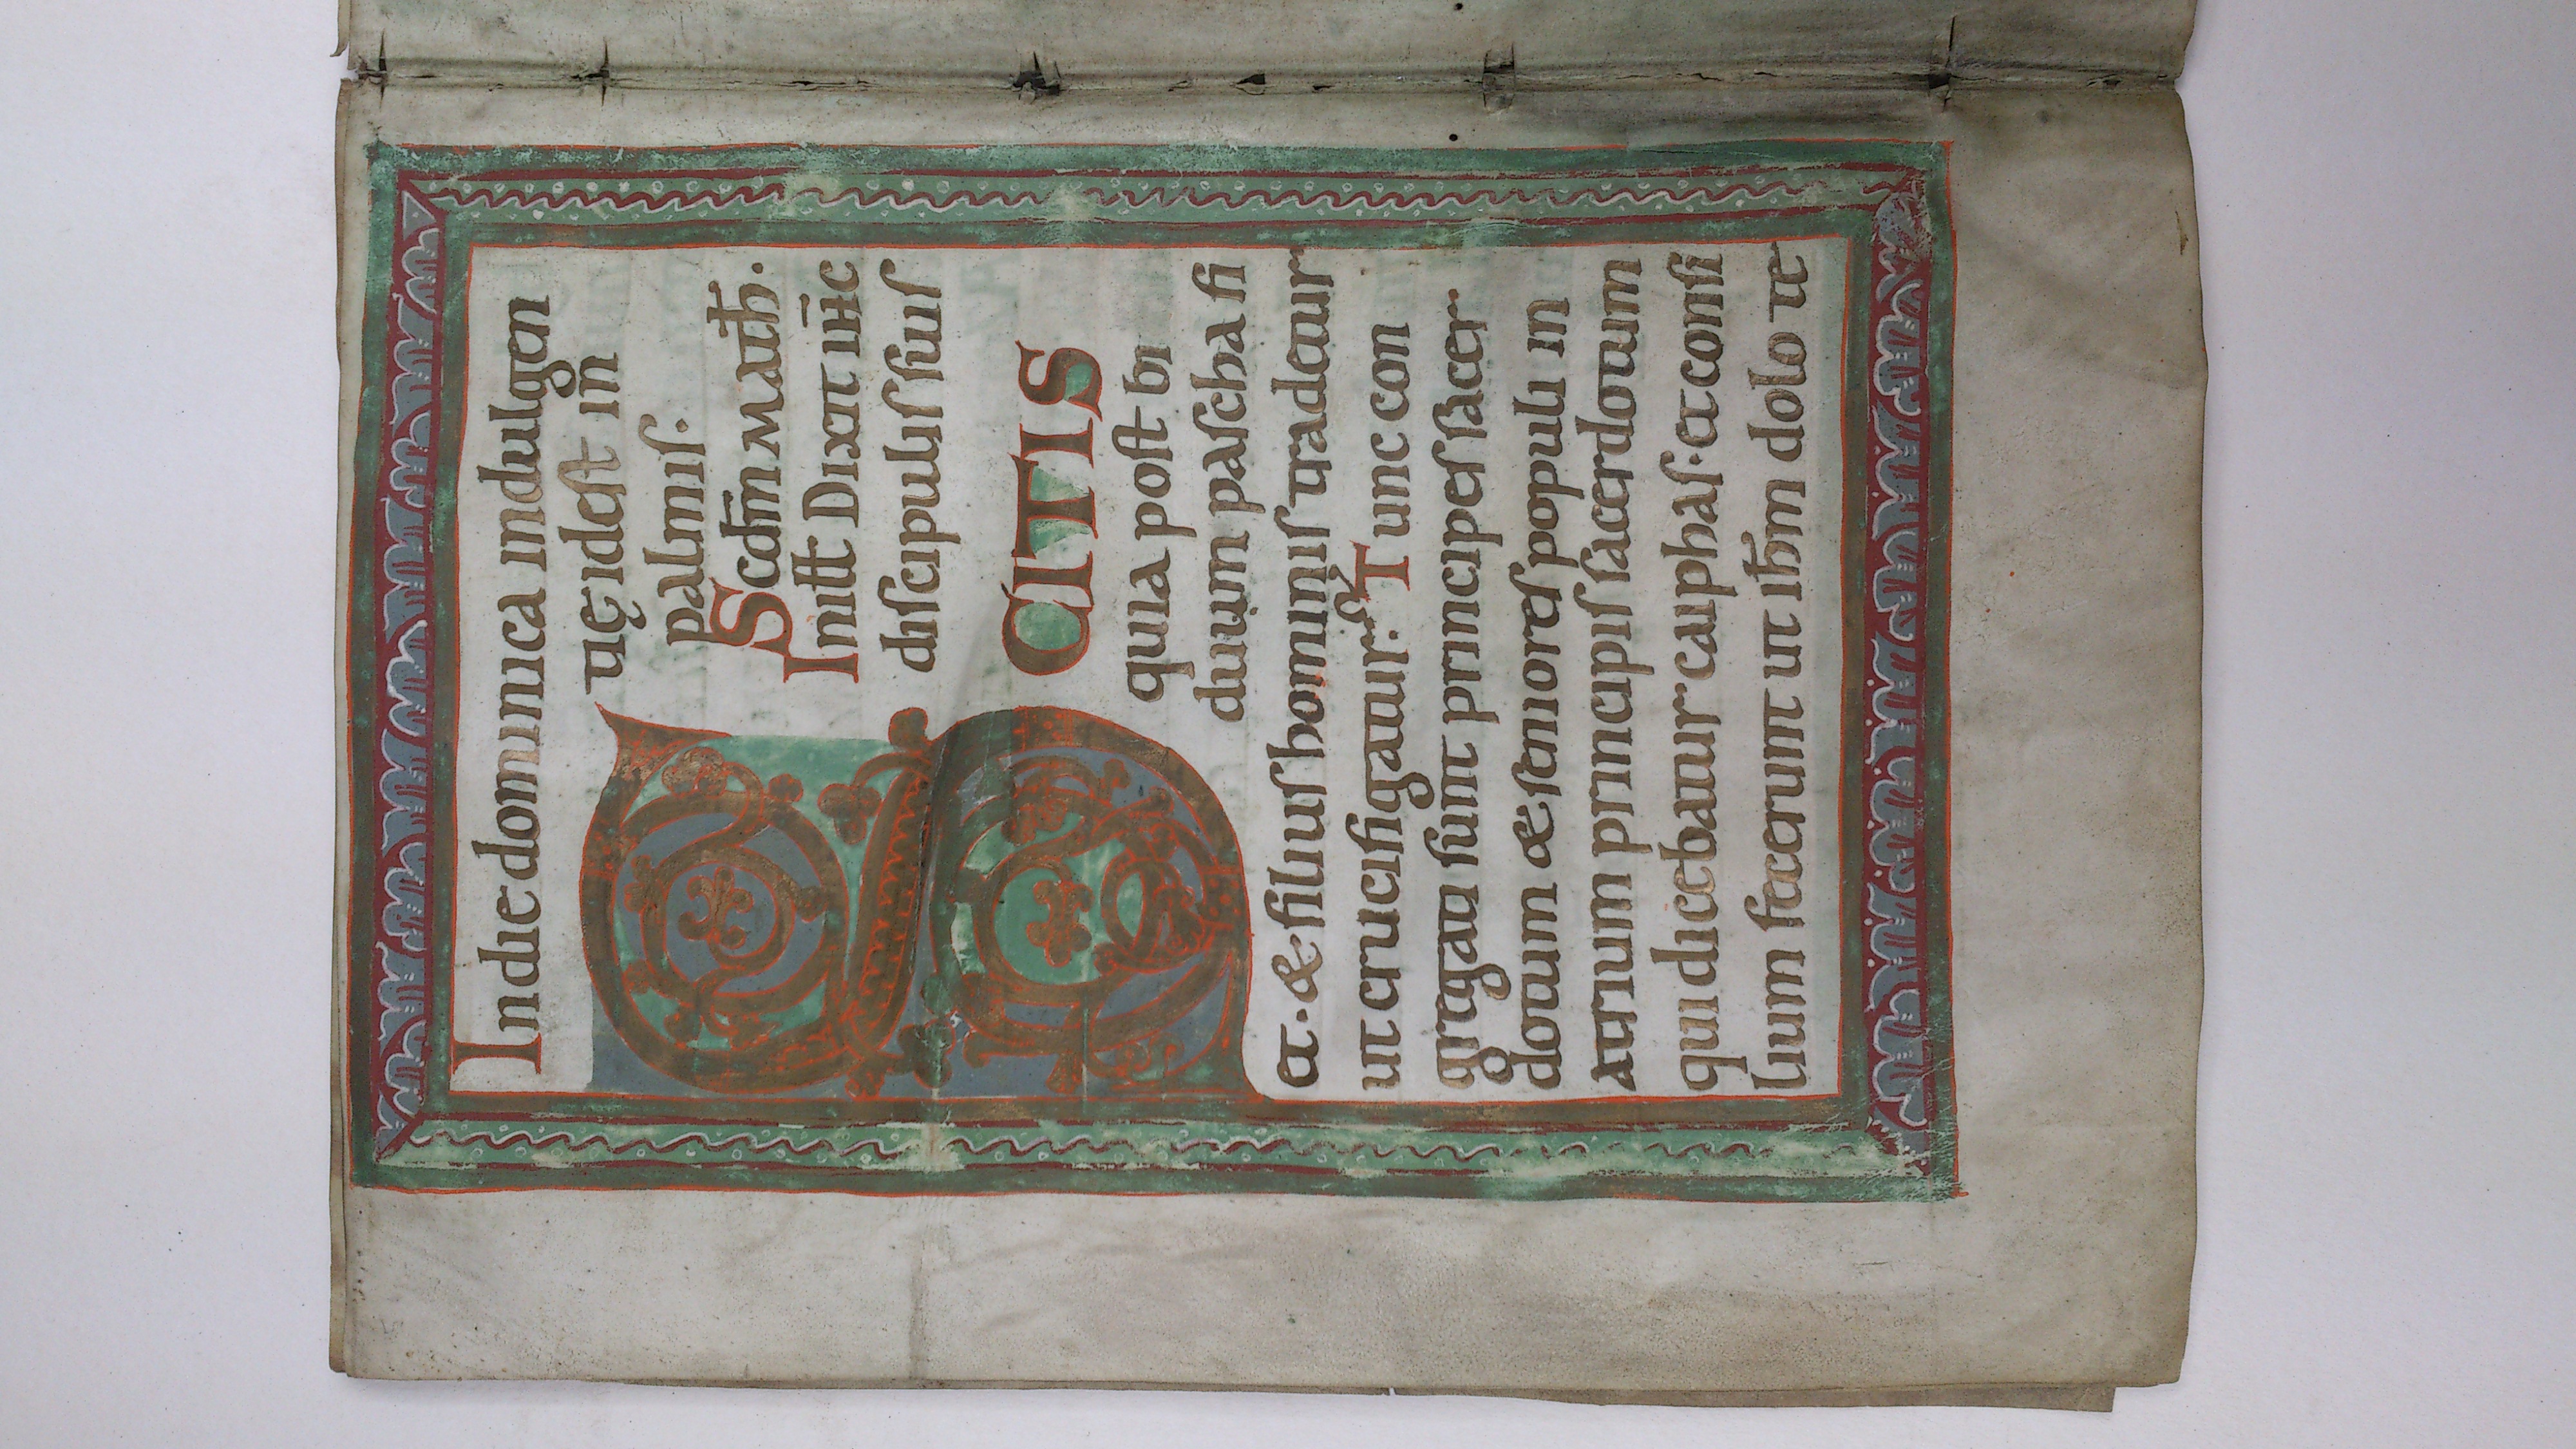 In die dominica indulgen
tię idest in
palmis.
Scdm̄ math̄.
In iłł Dixit ih̄c
discipulis suis
SCITIS
quia post bi
duum pascha fi
et. & filius hominis tradetur
ut crucifigatur. Tunc con
gregati sunt principes sacer
dotum & seniores populi in
atrium principis sacerdotum
qui dicebatur caiphas. et consi
lium fecerunt ut ih̄m dolo te